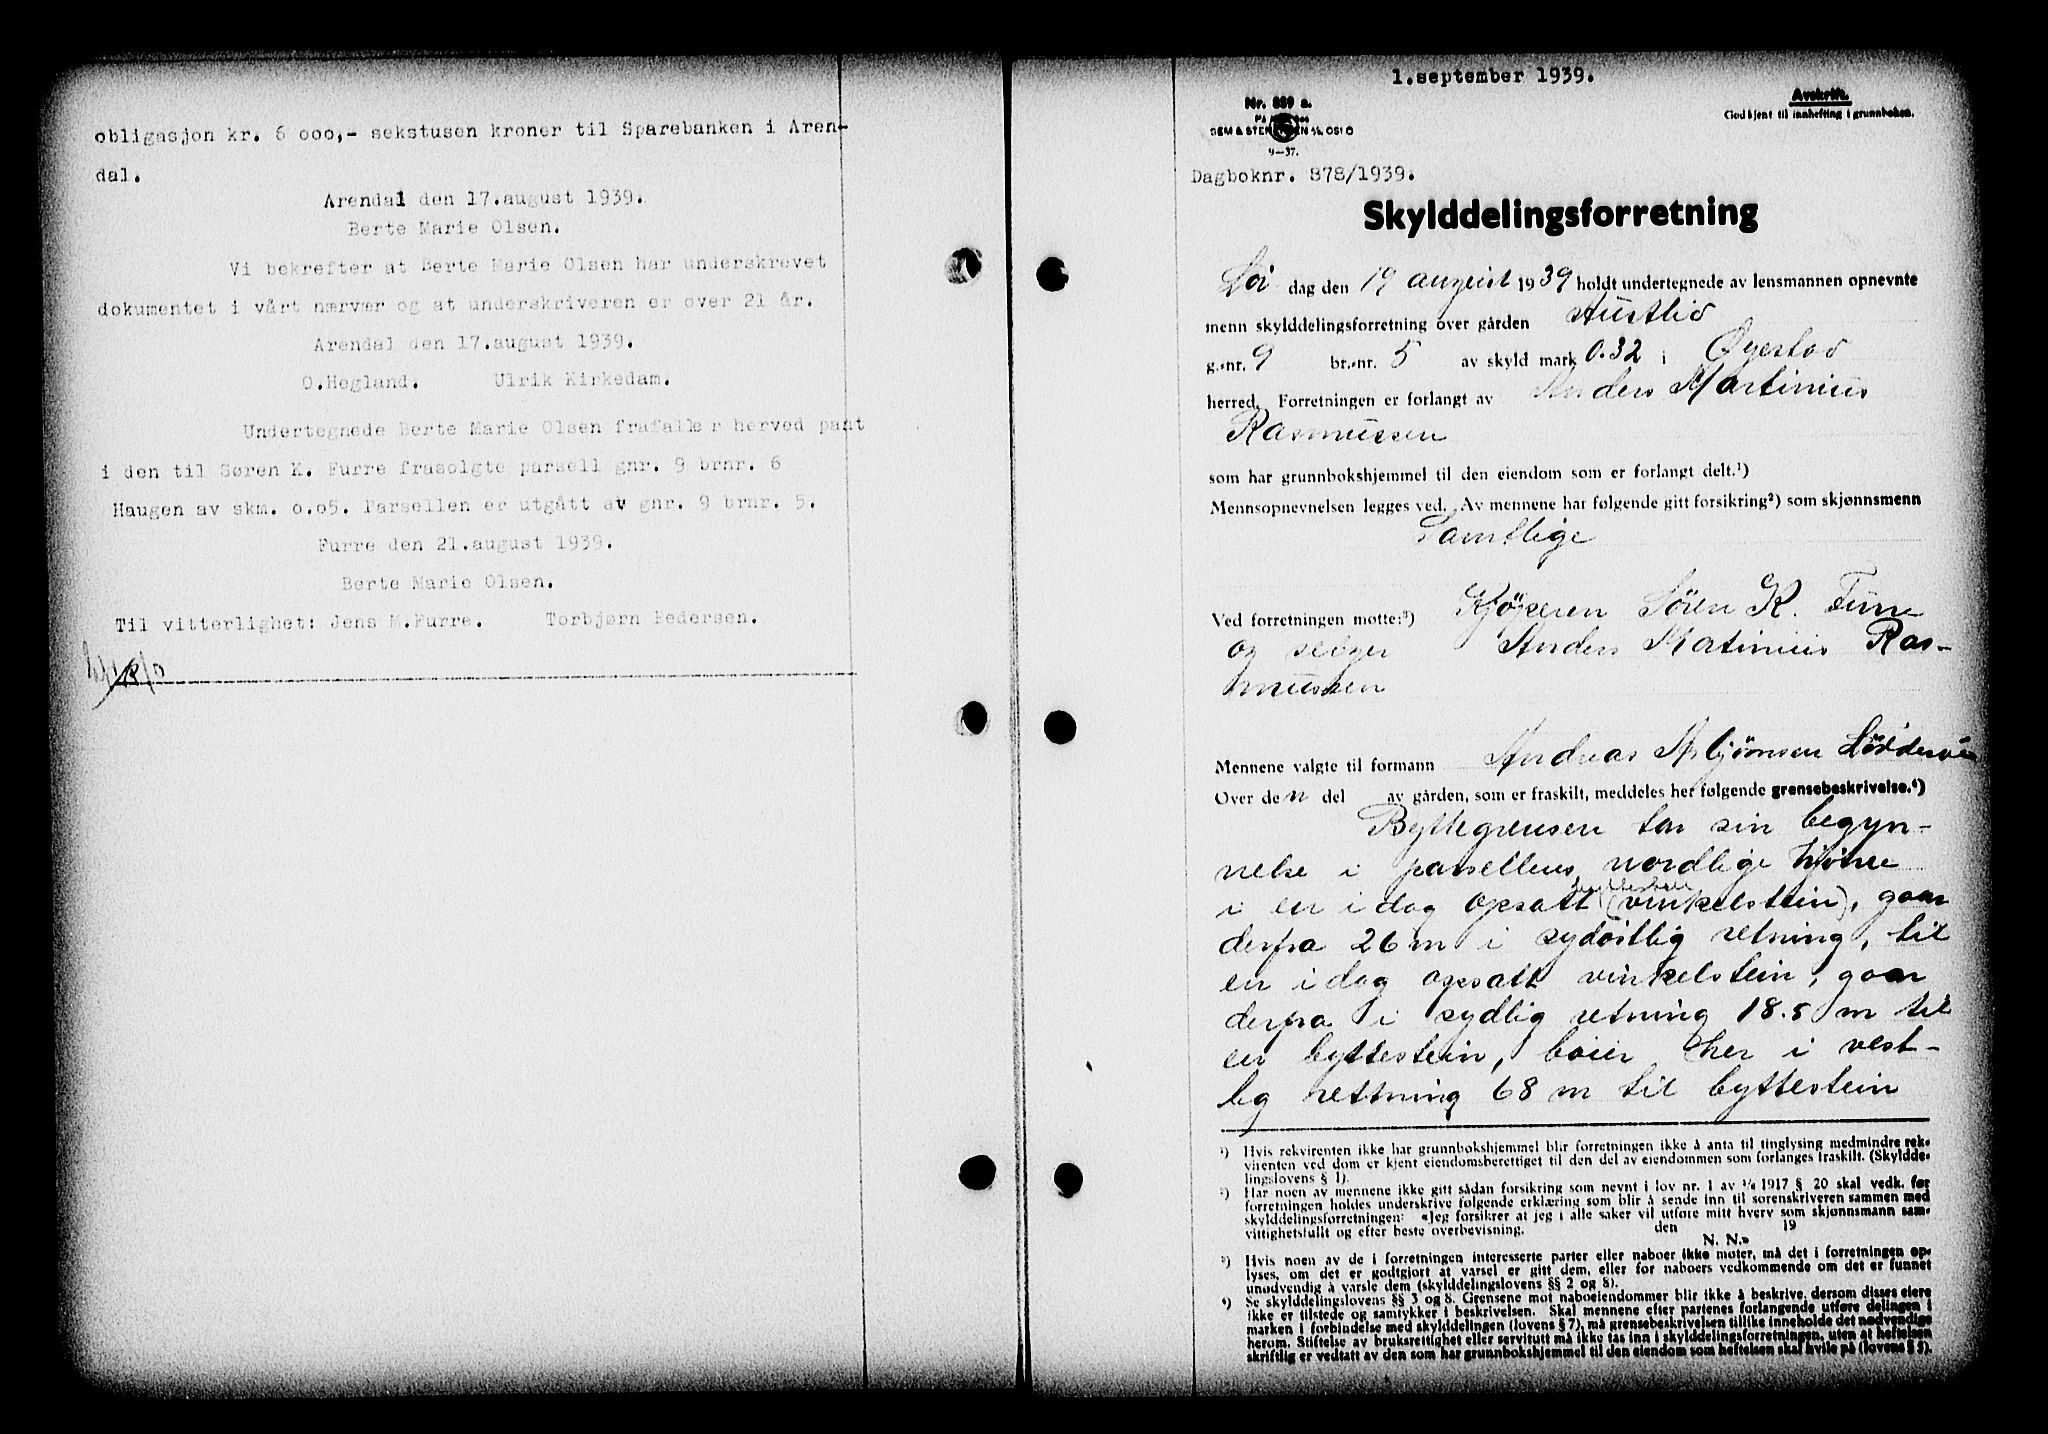 obligasjon kr. 6 000,- sekstusen kroner til Sparebanken i Aren-
dal.
Arendal den 17.august 1939.
Berte Marie Olsen.
Vi bekrefter at Berte Marie Olsen har underskrevet
dokumentet i vårt nærvær og at underskriveren er over 21 år.
Arendal den 17.august 1939.
O.Hegland. Ulrik Kirkedam.
Undertegnede Berte Marie Olsen frafaller herved pant
i den til Søren K. Furre frasolgte parsell gnr. 9 brnr. 6
Haugen av skm. 0.05. Parsellen er utgått av gnr. 9 brnr. 5.
Furre den 21.august 1939.
Berte Marie Olsen.
Til vitterlighet: Jens M.Furre. Torbjørn Pedersen.
1.september 1939.
Nr. 889 a.
OSLO
9—37.
Avskrift.
Godkjent til innhefting i grunnboken.
Dagboknr. 878/1939.
Skylddelingsforretning
Lør dag den 19 august 1939 holdt undertegnede av lensmannen opnevnte
menn skylddelingsforretning over gården Austlid
g.-nr. 9 br.-nr. 5 av skyld mark 0.32 i Øyestad
herred. Forretningen er forlangt av Anders Martinius
Rasmussen
som har grunnbokshjemmel til den eiendom som er forlangt delt.¹)
Mennsopnevnelsen legges ved. Av mennene har følgende gitt forsikring²) som skjønnsmenn
Samtlige
Ved forretningen møtte:³) Kjöperen Sören K. Furre
og selger Anders Martinius Ras-
mussen
Mennene valgte til formann Andreas Asbjörnsen
Over den del av gården, som er fraskilt, meddeles her følgende grensebeskrivelse.⁴)
Byttegrensen tar sin begyn-
nelse i parsellens nordlige hjörne
i en idag opsatt (vinkelstein), gaar
derfra 26 m i sydöstlig retning, til
en idag opsatt vinkelstein, gaar
derfra i sydlig retning 18.5 m til
en byttestein, böier her i vest-
lig rettning 68 m til byttestein
¹) Hvis rekvirenten ikke har grunnbokshjemmel blir forretningen ikke å anta til tinglysing medmindre rek-
virenten ved dom er kjent eiendomsberettiget til den del av eiendommen som forlanges fraskilt. (Skyldde-
lingslovens § 1).
²) Har noen av mennene ikke gitt sådan forsikring som nevnt i lov nr. 1 av 1/6 1917 § 20 skal vedk. før
forretningen holdes underskrive følgende erklæring som blir å sende inn til sorenskriveren sammen med
skylddelingsforretningen: «Jeg forsikrer at jeg i alle saker vil utføre mitt hverv som skjønnsmann sam-
vittighetsfullt og efter beste overbevisning. den 19
N. N.»
³) Hvis noen av de i forretningen interesserte parter eller naboer ikke møter, må det i forretningen op-
lyses, om det er godtgjort at varsel er gitt dem, eller for naboers vedkommende om det er funnet
unødvendig å varsle dem (skylddelingslovens §§ 2 og 8).
⁴) Se skylddelingslovens §§ 3 og 8. Grensene mot naboeiendommer blir ikke å beskrive, dersom disses eiere
ikke er tilstede og samtykker i beskrivelsen. Skal mennene efter partenes forlangende utføre delingen i
marken i forbindelse med skylddelingen (lovens § 7), må grensebeskrivelsen tillike inneholde det nødvendige
herom. Stiftelse av bruksrettighet eller servitutt må ikke tas inn i skylddelingsforretningen, uten at heftelsen
skriftlig er vedtatt av den som har grunnbokshjemmel til den eiendom som heftelsen skal hvile på (lovens § 5).